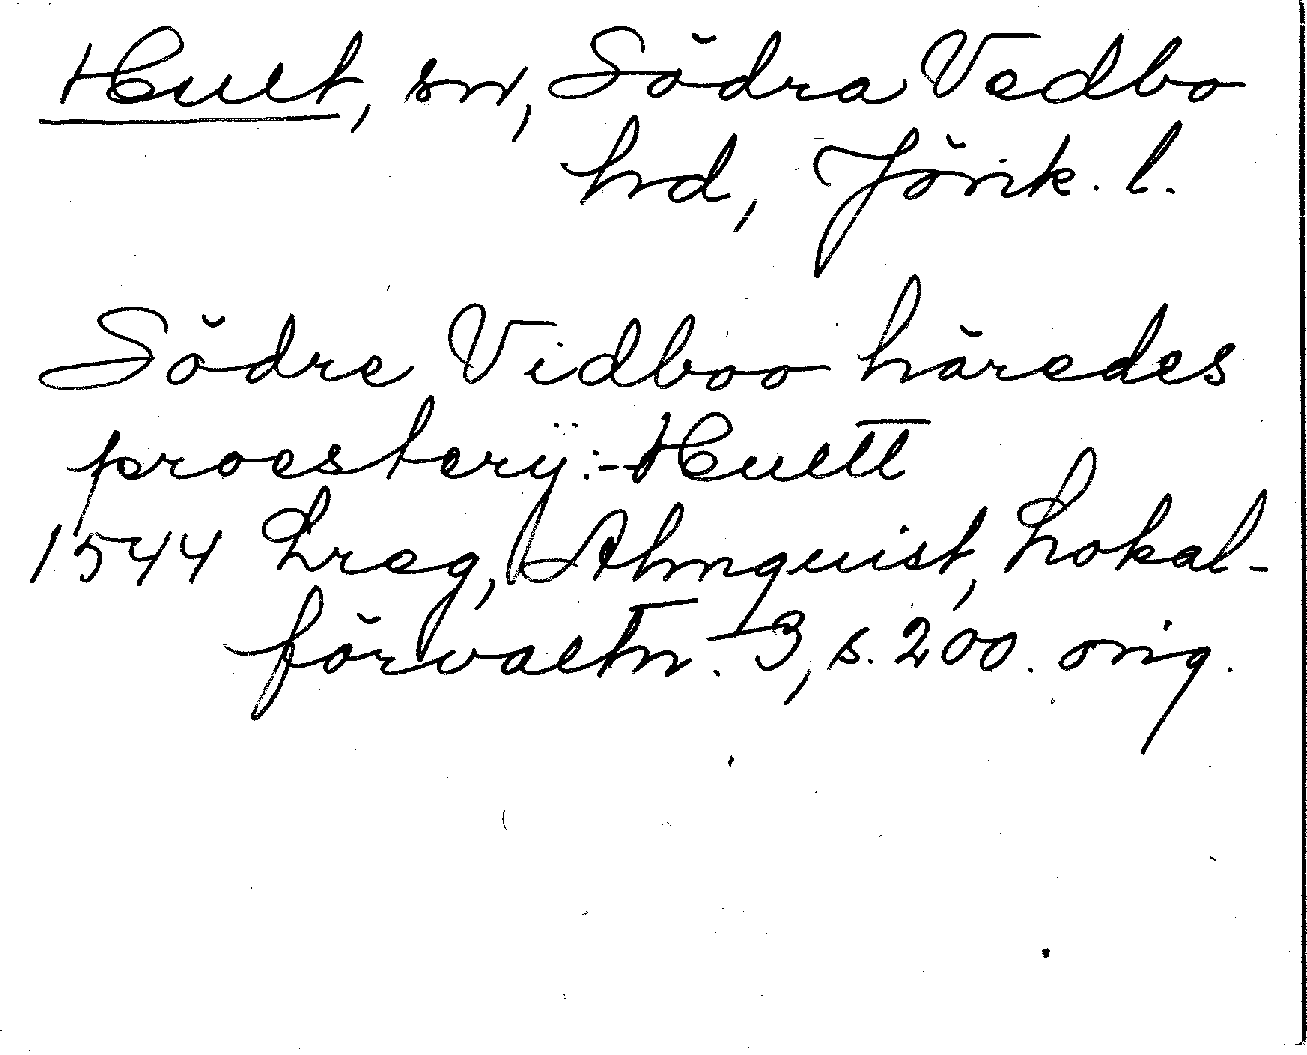 Hult, sn, Södra Vedbo
hd, Jönk. l.
Södre Vidboo häredes
proestery:- Hultt
1544 Lreg, Almquist, Lokal-
förvaltn. 3, s. 200. orig.